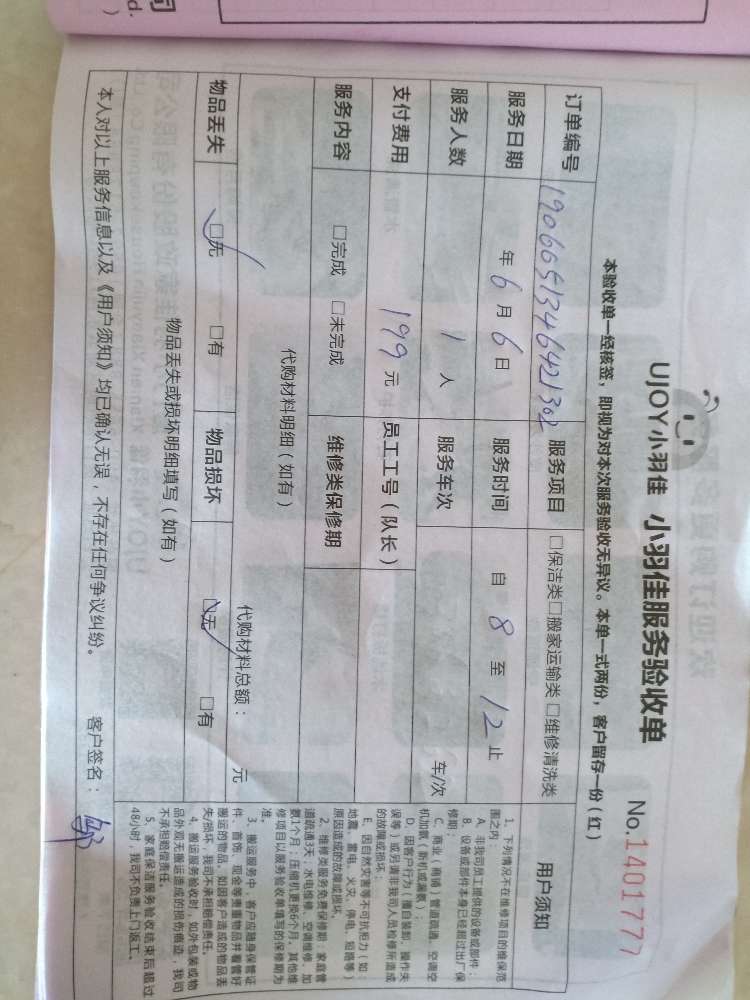 UJOY小羽佳 小羽佳服务验收单
No.1401777
本验收单一经核签，即视为对本次服务验收无异议。本单一式两份，客户留存一份（红）
订单编号 19066051346421302 服务项目 □保洁类□搬家运输类□维修清洗类
服务日期 年6月6日 服务时间 自8至12止
服务人数 1人 服务车次 车/次
支付费用 199元 员工工号（队长）
服务内容 □完成 □未完成 维修类保修期
代购材料明细（如有） 代购材料总额： 元
物品丢失 □无 □有 物品损坏 □无 □有
物品丢失或损坏明细填写（如有）
本人对以上服务信息以及《用户须知》均已确认无误，不存在任何争议纠纷。 客户签名：
用户须知
1、下列情况不在维修项目的维保范
围之内：
A、非我司员工提供的设备或部件；
B、设备或部件本身已经超过出厂保
修期；
C、商业（商铺）管道疏通、空调空
机加氨（新机或漏氨）；
D、因客户行为（擅自装卸、操作失
误等）或另请非我司人员维修所造成
的故障或损坏；
E、因自然灾害等不可抗拒力（如：
地震、雷电、火灾、停电、短路等）
原因造成的故障或损坏。
2、维修类服务免费保修期：家庭管
道疏通3天；水电维修、空调维修、加
氨1个月；压缩机更换6个月。其他维
修项目以服务验收单填写的保修期为
准。
3、搬运服务中，客户应随身保管证
件、首饰、现金等贵重物品并看管好
搬运的物品，如因客户造成的物品丢
失/损坏，我司不承担赔偿责任。
4、搬运服务验收时，如外包装或物
品外观无搬运造成的损伤痕迹，我司
不承担赔偿责任。
5、家庭保洁服务验收结束后超过
48小时，我司不负责上门返工。